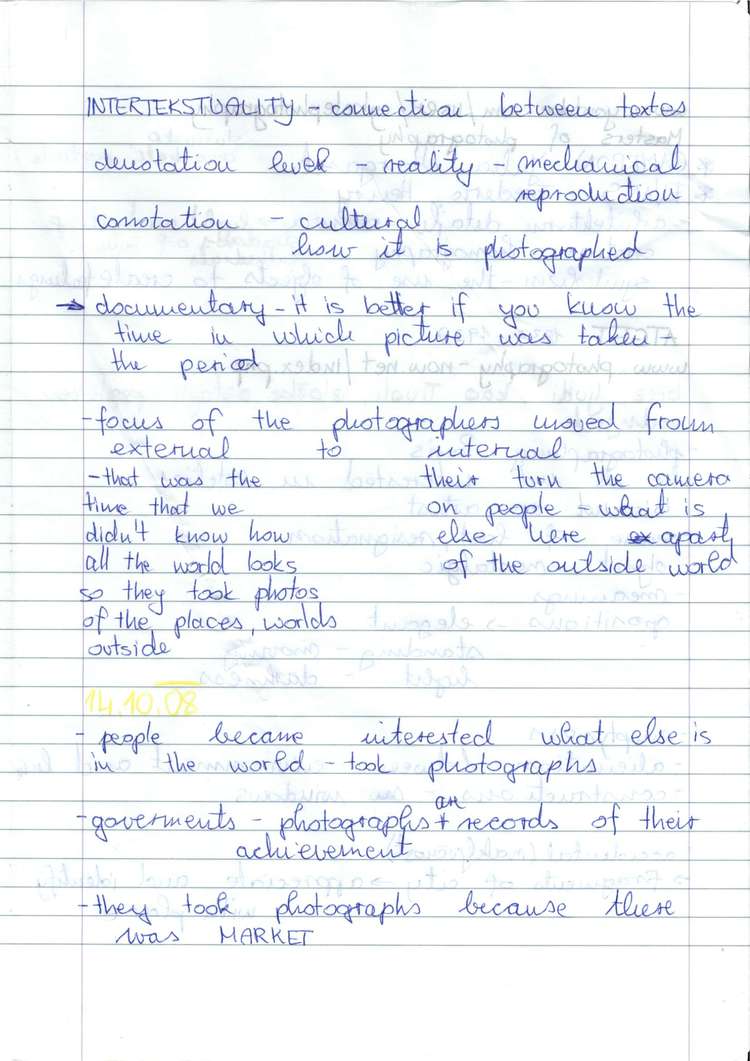 INTERTEKSTUALITY - connection between textes
denotation level - reality - mechanical
reproduction
conotation - cultural
how it is photographed
→ documentary - it is better if you know the
time in which picture was taken -
the period
- focus of the photographers moved from
external to internal
- that was the
time that we
didn't know how
all the world looks
so they took photos
of the places, worlds
outside
their turn the camera
on people - what is
else here apart
of the outside world
14.10.08
- people became interested what else is
in the world - took photographs
- goverments - photographs are records of their
achievement
- they took photographs because there
was MARKET